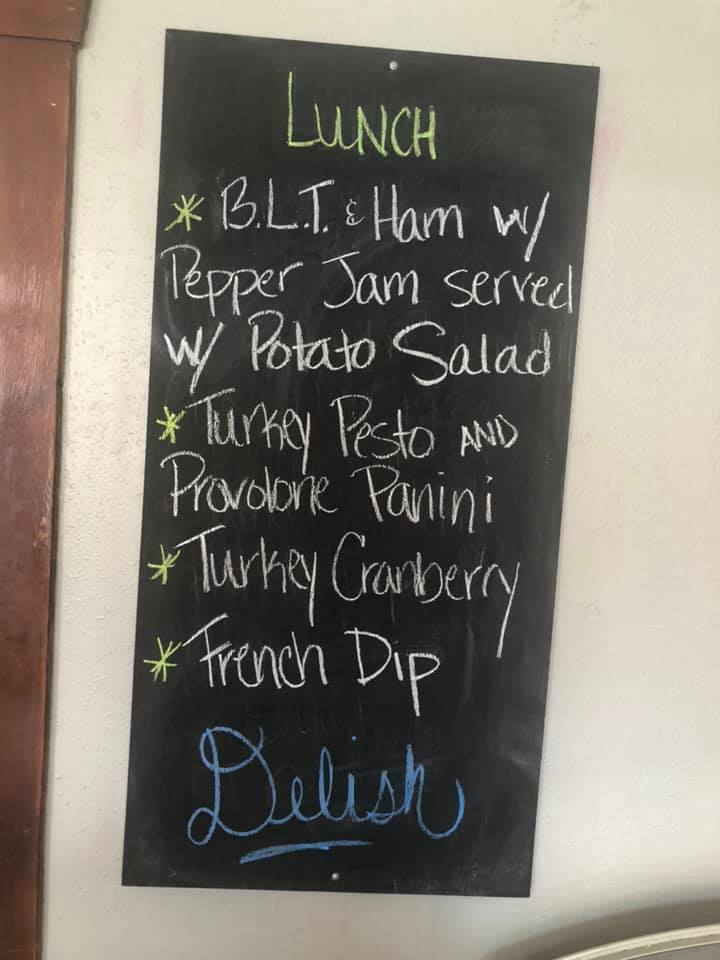 LUNCH
* B.L.T. & Ham w/
Pepper Jam served
w/ Potato Salad
* Turkey Pesto AND
Provolone Panini
* Turkey Cranberry
* French Dip
Delish